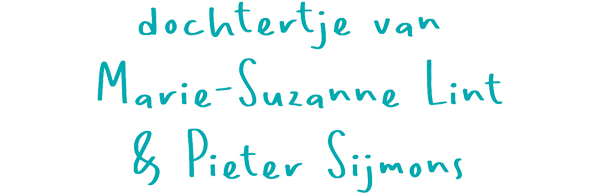 dochtertje van
Marie-Suzanne Lint
& Pieter Sijmons